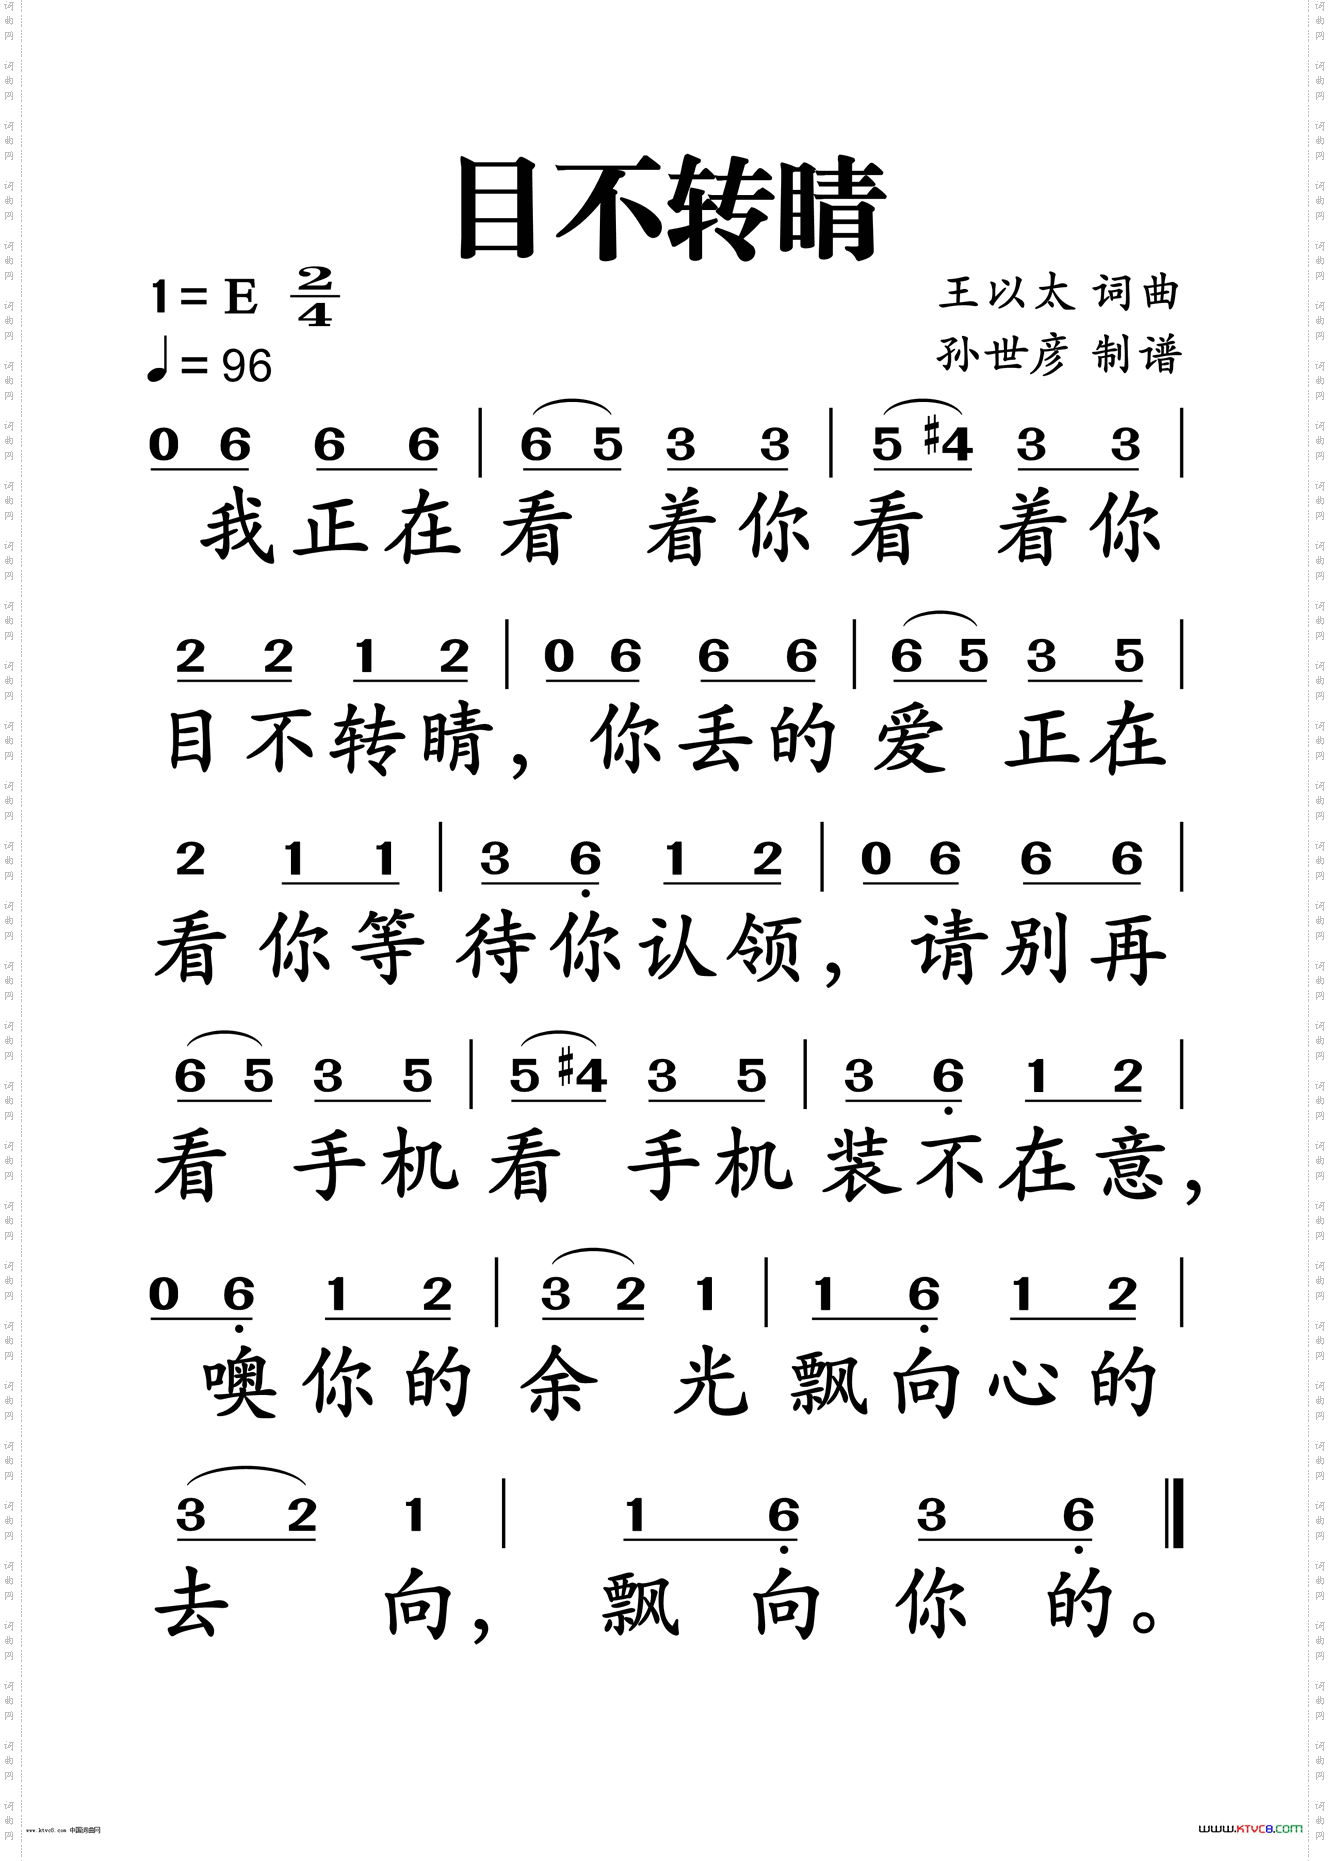 目不转晴
1= E 2/4
王以太 词曲
♩= 96
孙世彦 制谱
0 6 6 6 | 6 5 3 3 | 5 #4 3 3 |
我正在看 着你看 着你
2 2 1 2 | 0 6 6 6 | 6 5 3 5 |
目不转晴，你丢的爱 正在
2 1 1 | 3 6̣ 1 2 | 0 6 6 6 |
看你等待你认领，请别再
6 5 3 5 | 5 #4 3 5 | 3 6̣ 1 2 |
看 手机看 手机装不在意，
0 6̣ 1 2 | 3 2 1 | 1 6̣ 1 2 |
噢你的余 光飘向心的
3 2 1 | 1 6̣ 3 6̣ ‖
去 向，飘向你的。
www.ktvc8.com 中国词曲网
www.KTVC8.com